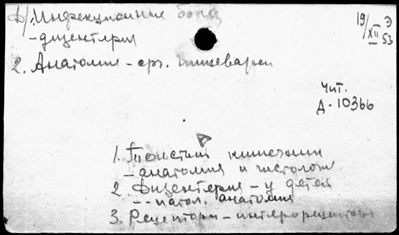 1) Инфекционные бол.
19/XII 53 Э
- дизентерия
2. Анатомия - орг. пищеварен
Чит.
Д-10366
1. Толстый кишечник
- анатомия и гистолог
2. Дизентерия - у детей
-"- патол. анатомия
3. Рецепторы - интерорецепторы